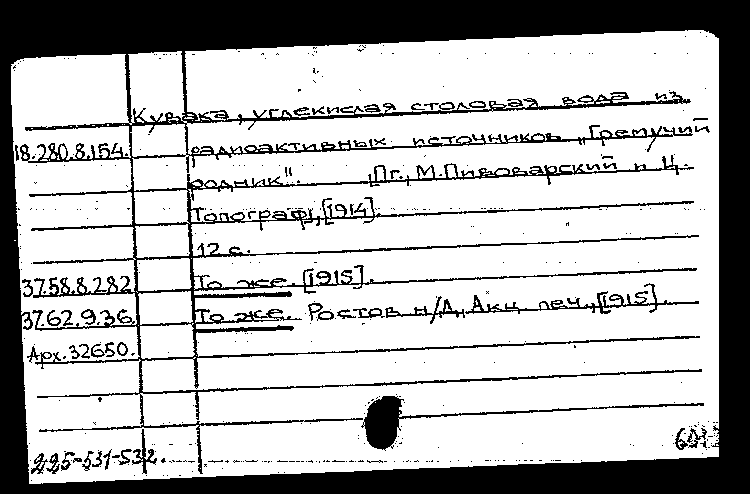 Кувака, углекислая столовая вода из
18.280.8.154. радиоактивных источников „Гремучий
родник". [Пг., М. Пивоварский и Ц.
Типограф], [1914].
12 с.
37.58.8.282 То же. [1915].
37.62.9.36. То же. Ростов н/Д, Акц. печ., [1915].
Арх. 32650.
225-531-532.